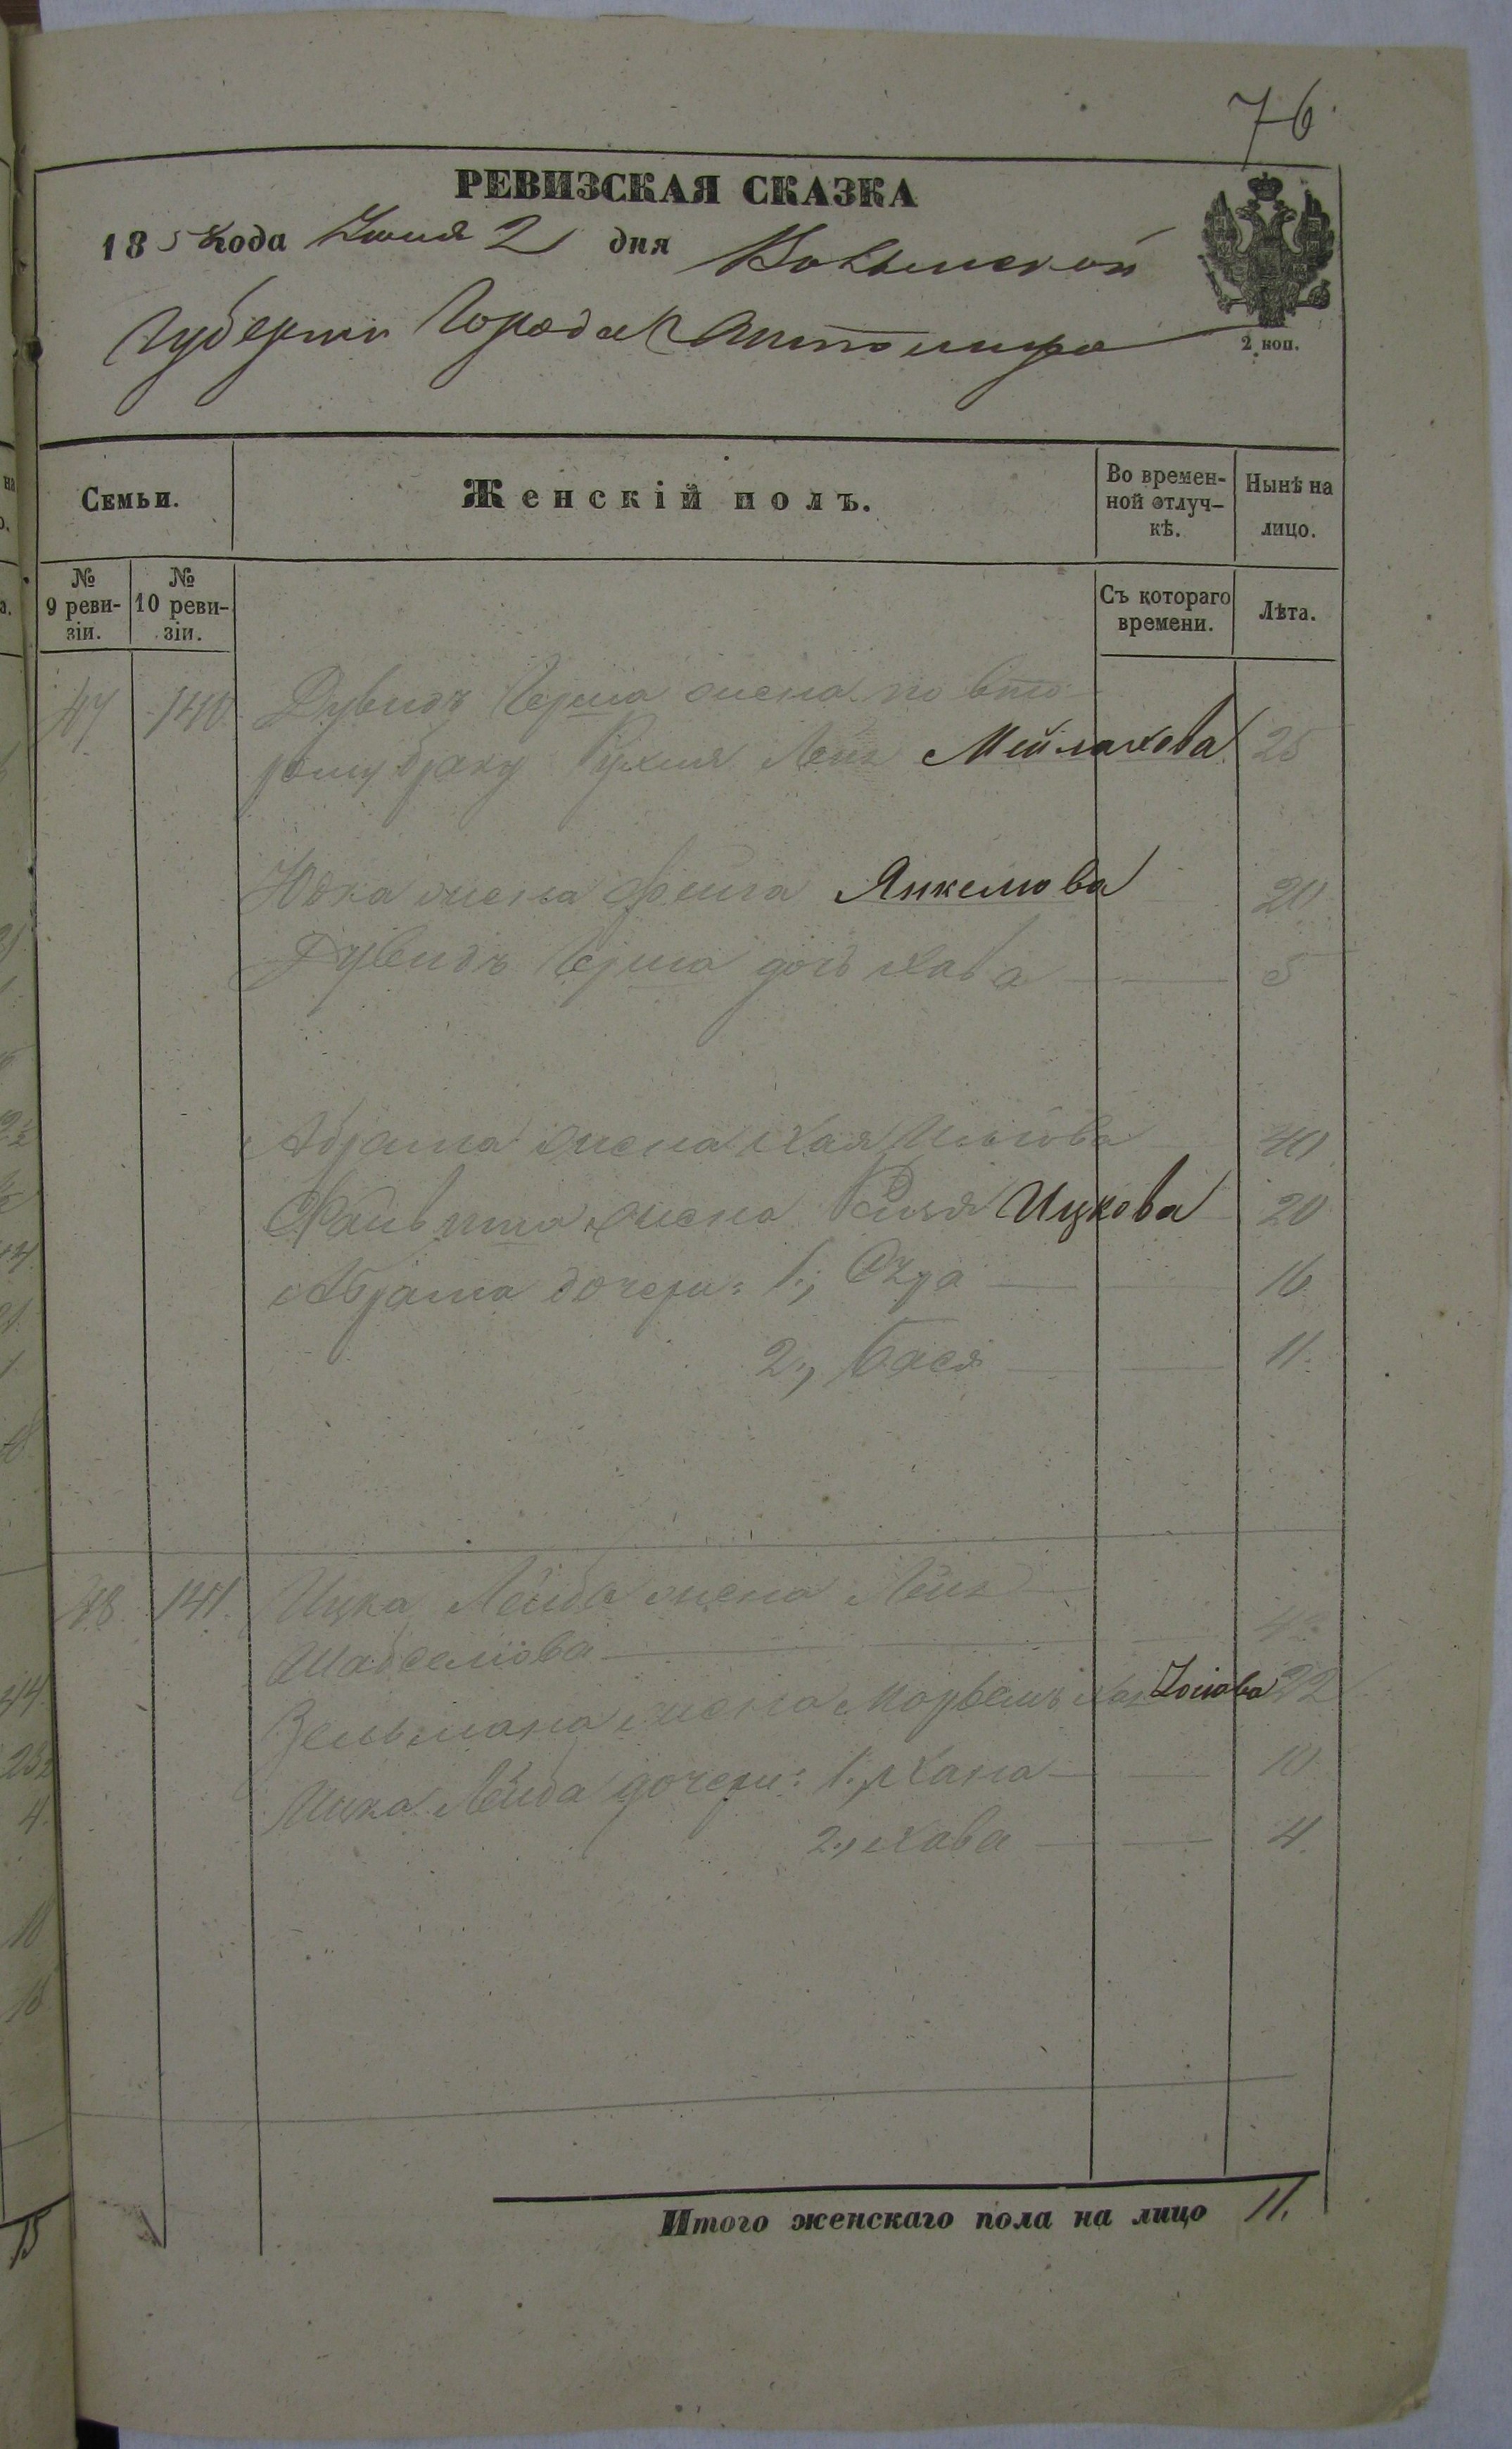 76.
РЕВИЗСКАЯ СКАЗКА
185 года Июня 2 дня Волынской
Губернии Города Житомира
2 коп.
Семьи. Женскій полъ. Во времен-ной отлуч-кѣ. Нынѣ на лицо.
№ 9 реви-зіи. № 10 реви-зіи. Съ котораго времени. Лѣта.
47 140. Дувидъ Герша жена по вто-
рому браку Рухля Лея Мейлахова 25
Юдка жена Фейга Янкелюва 20
Дувидъ Герша дочь Хава 5
Абрама жена Хая 40
жена Ицкова 20
Абрама дочери: 1., 16
2., Бася 11.
48 141. Ицка Лейба жена Лея
Шабселіова
Зельмана жена Хая 22
Ицка Лейба дочери: 1., Хана 10
2., Хава 4.
Итого женскаго пола на лицо 11.